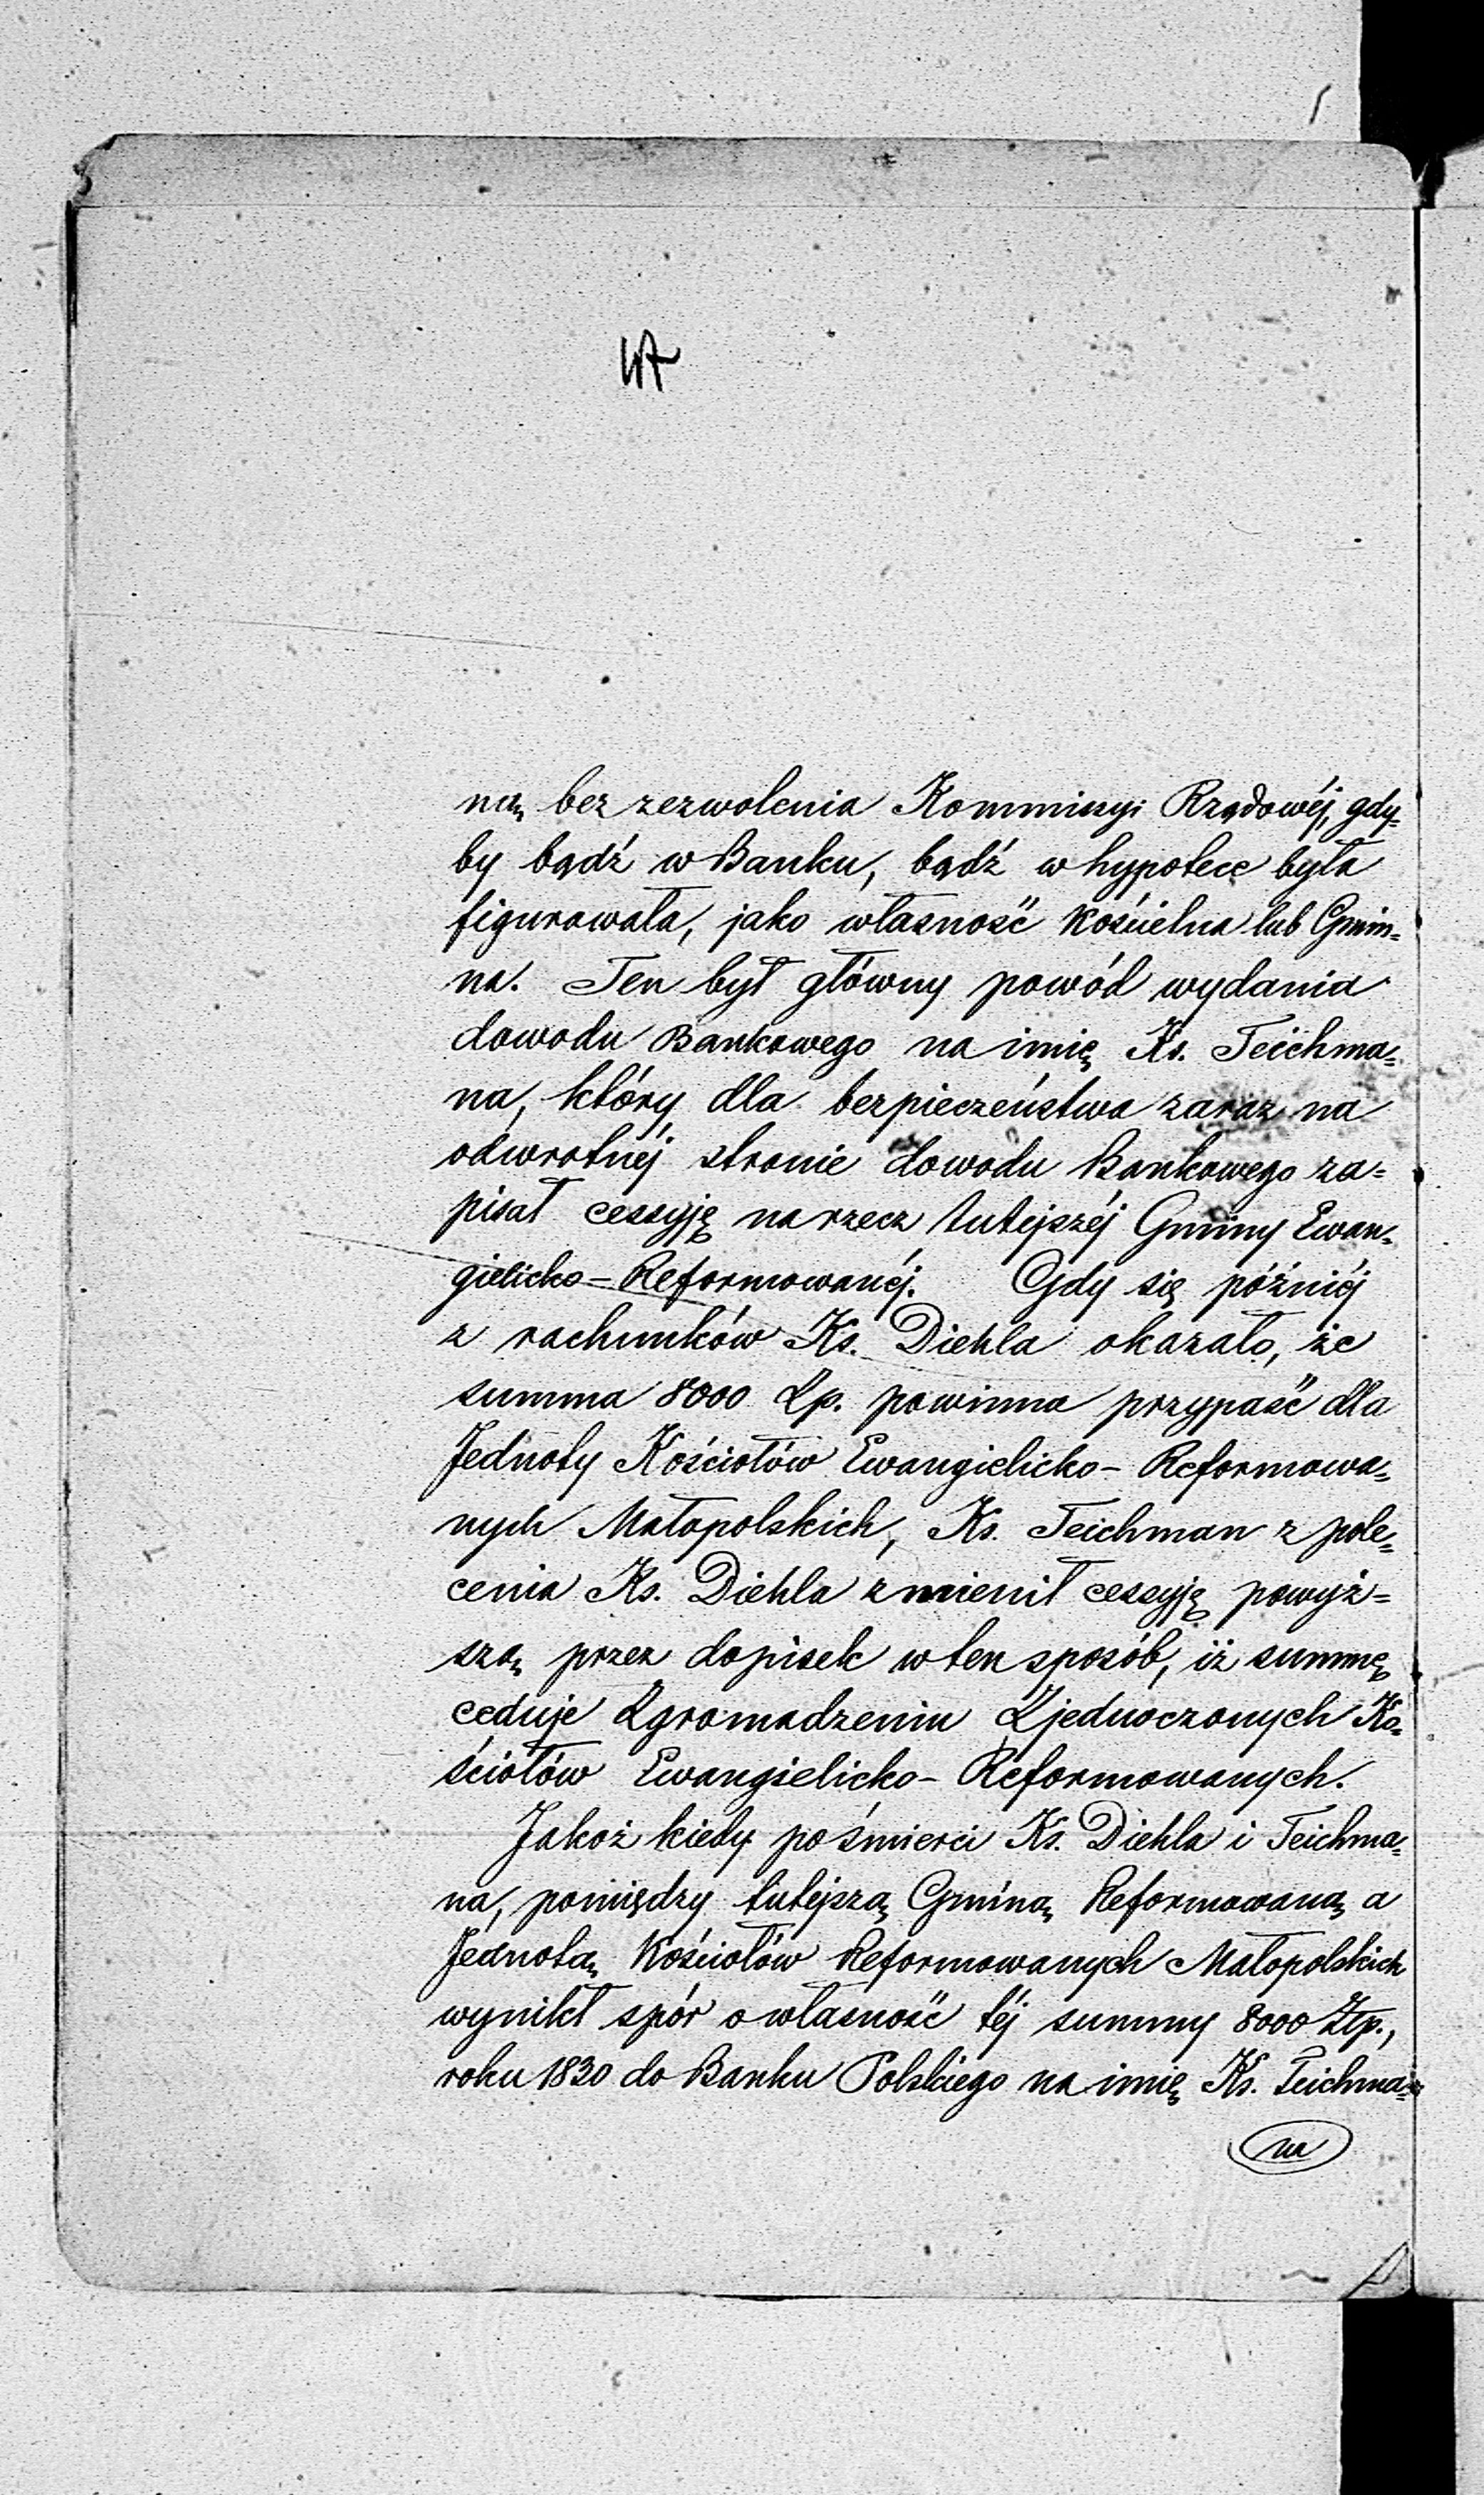 ną bez zezwolenia Kommissyi Rządowéj, gdy-
by bądź w Banku, bądź w hypotece była
figurowała, jako własność Kościelna lub Gmin-
na. Ten był główny powód wydania
dowodu Bankowego na imię Ks. Teichma-
na, który dla bezpieczeństwa zaraz na
odwrotnéj stronie dowodu Bankowego za-
pisał cessyję na rzecz tutejszéj Gminy Ewan-
gielicko-Reformowanéj. Gdy się późniéj
z rachunków Ks. Diehla okazało, że
summa 8000 Zp. powinna przypaść dla
Jednoty Kościołów Ewangielicko-Reformowa-
nych Małopolskich, Ks. Teichman z pole-
cenia Ks. Diehla zmienił cessyję powyż-
szą przez dopisek w ten sposób, iż summę
ceduje Zgromadzeniu Zjednoczonych Ko-
ściołów Ewangielicko-Reformowanych.
Jakoż kiedy po śmierci Ks. Diehla i Teichma-
na, pomiędzy tutejszą Gminą Reformowaną a
Jednotą Kościołów Reformowanych Małopolskich
wynikł spór o własność téj summy 8000 Złp.,
roku 1830 do Banku Polskiego na imię Ks. Teichma-
na